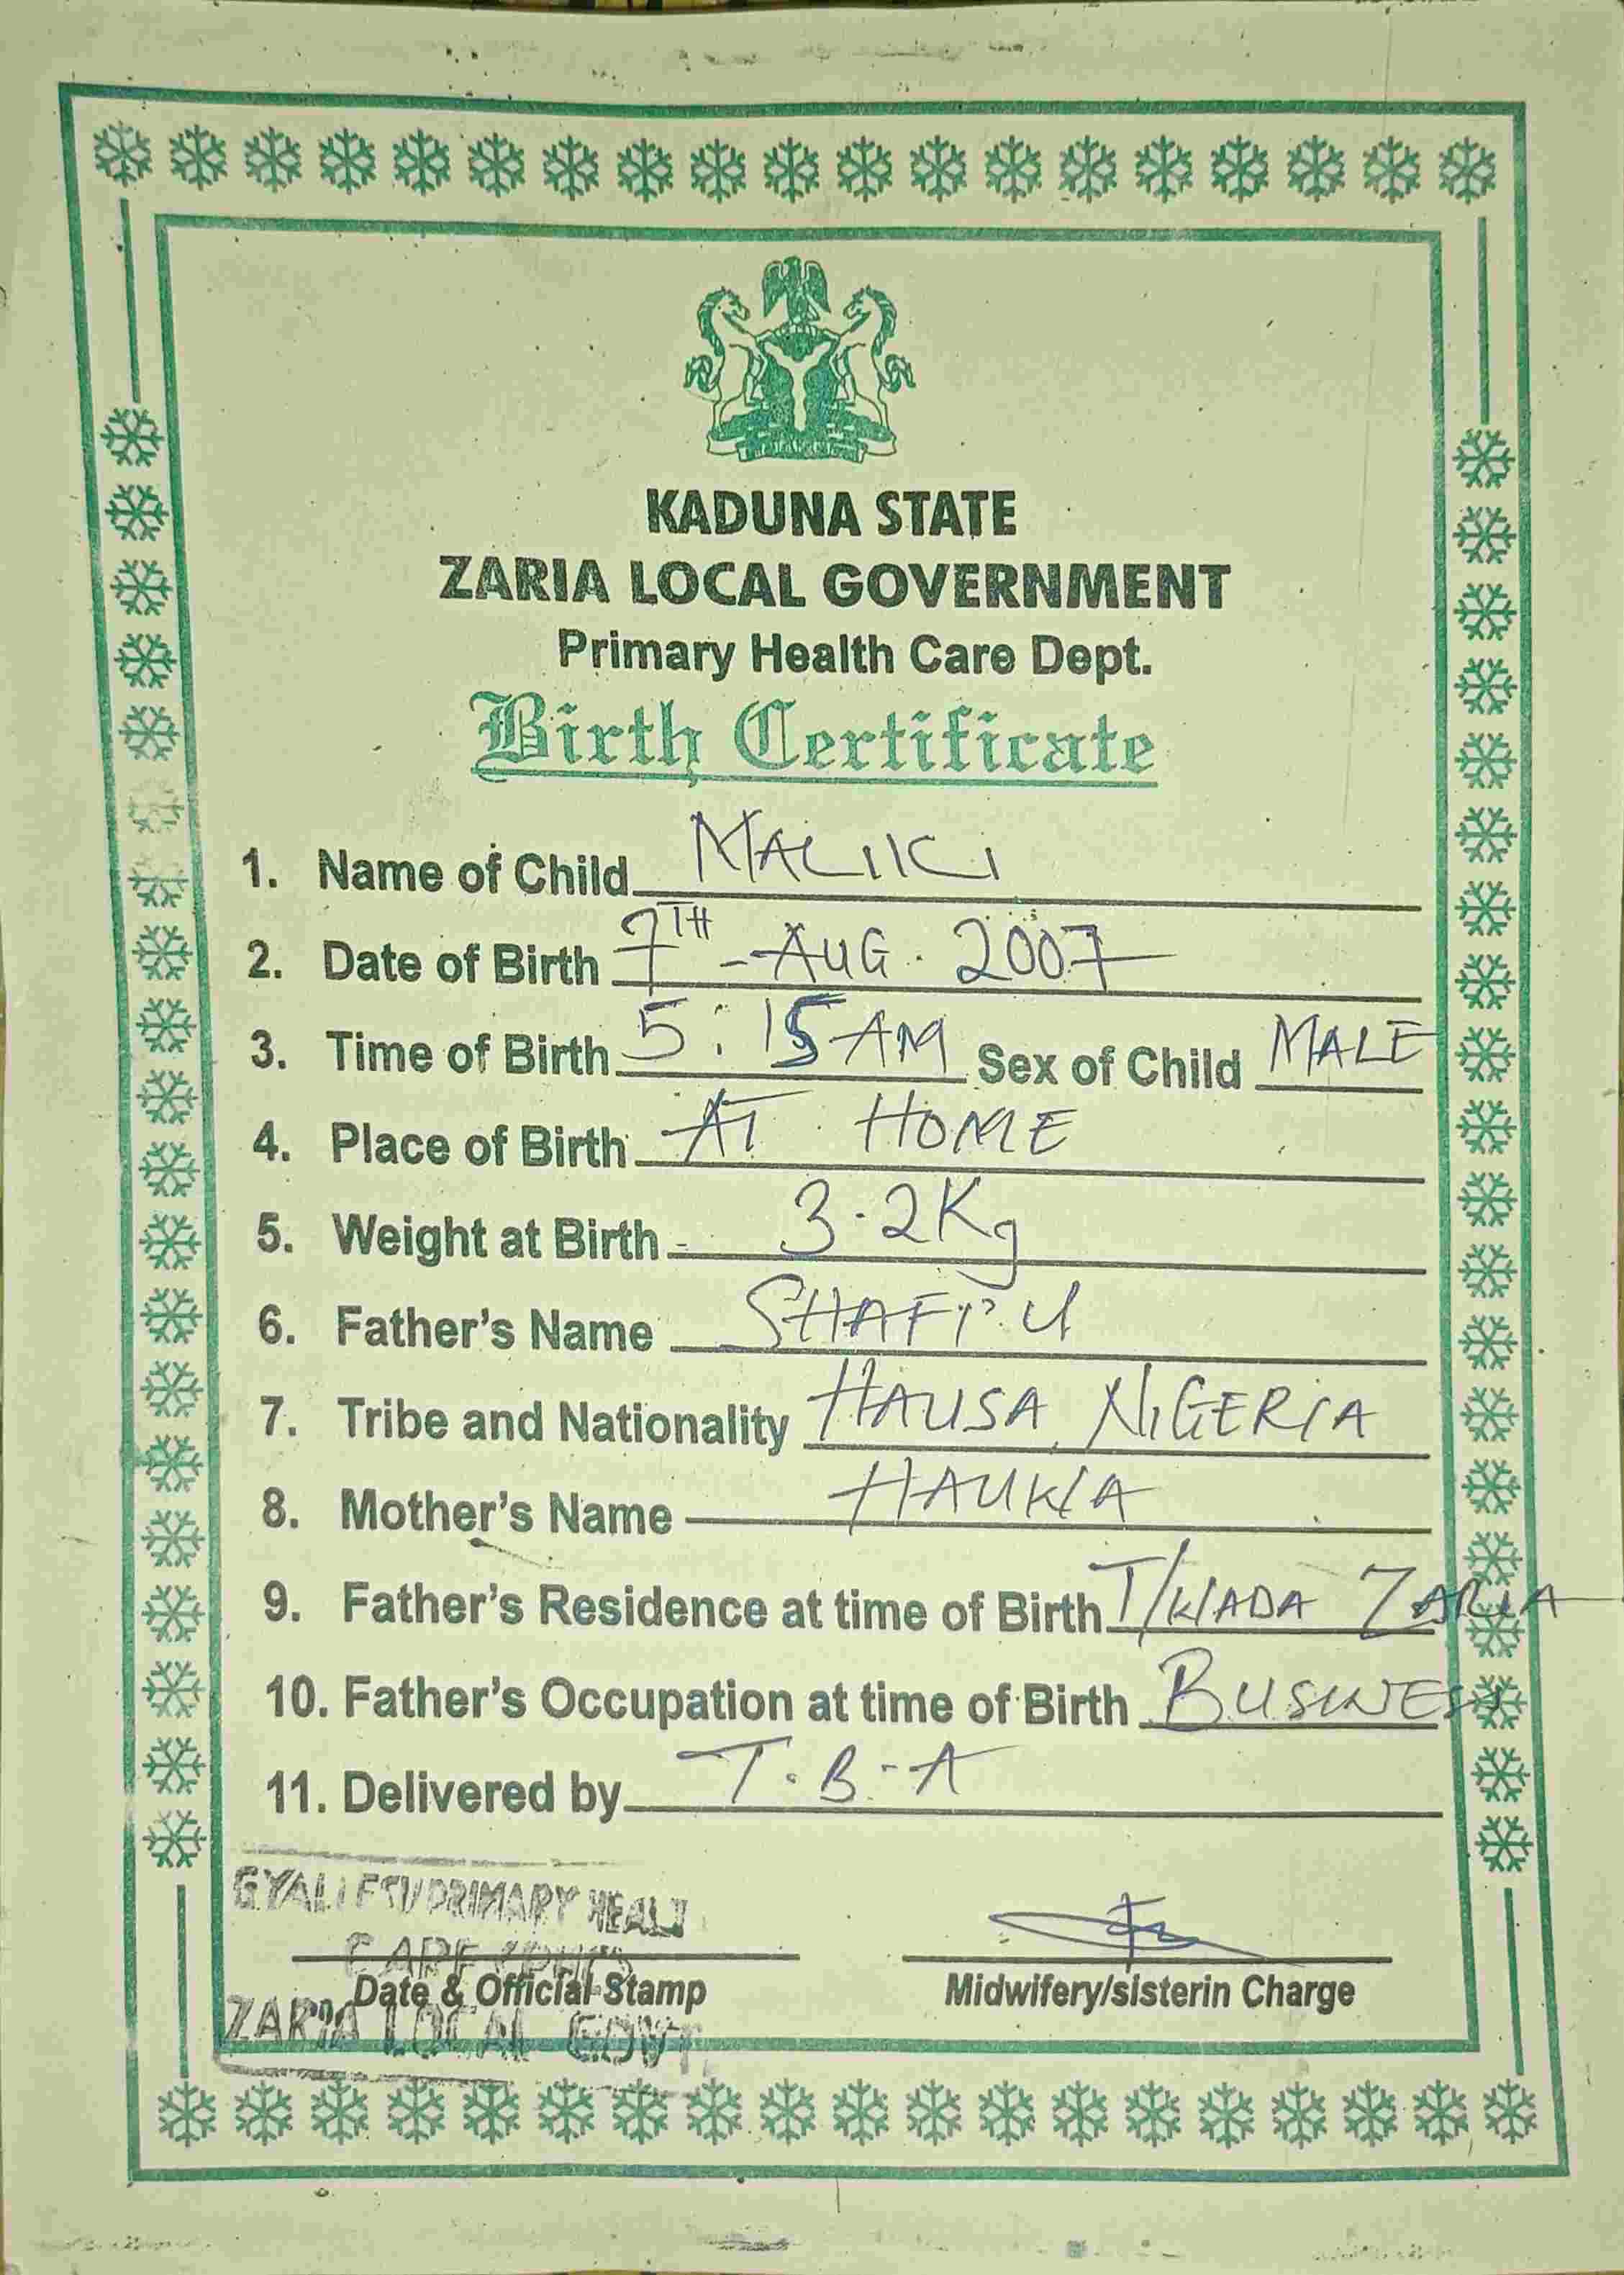 KADUNA STATE
ZARIA LOCAL GOVERNMENT
Primary Health Care Dept.
Birth Certificate
1. Name of Child MALIKI
2. Date of Birth 7TH - AUG. 2007
3. Time of Birth 5:15 AM Sex of Child MALE
4. Place of Birth AT HOME
5. Weight at Birth 3.2Kg
6. Father's Name SHAFI'U
7. Tribe and Nationality HAUSA, NIGERIA
8. Mother's Name HAUWA
9. Father's Residence at time of Birth T/WADA ZARIA
10. Father's Occupation at time of Birth BUSINESS
11. Delivered by T.B.A
PRIMARY
Date & Official Stamp Midwifery/sisterin Charge
ZARIA LOCAL GOVT.